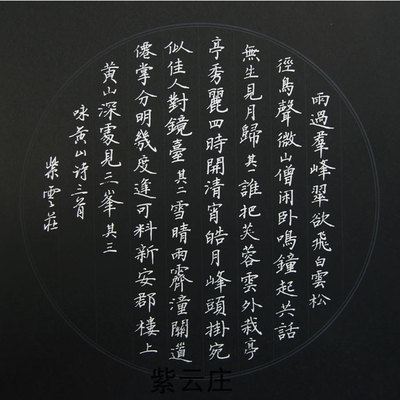 雨過羣峰翠欲飛白雲松
徑鳥聲微山僧闲卧鳴鐘起共話
無生見月歸其一誰把芙蓉雲外栽亭
亭秀麗四時開清宵皓月峰頭掛宛
似佳人對鏡臺其二雪晴雨霽潼關道
僊掌分明幾度逢可料新安郡樓上
黄山深處見三峯其三
咏黄山诗三首
紫雲莊
紫云庄